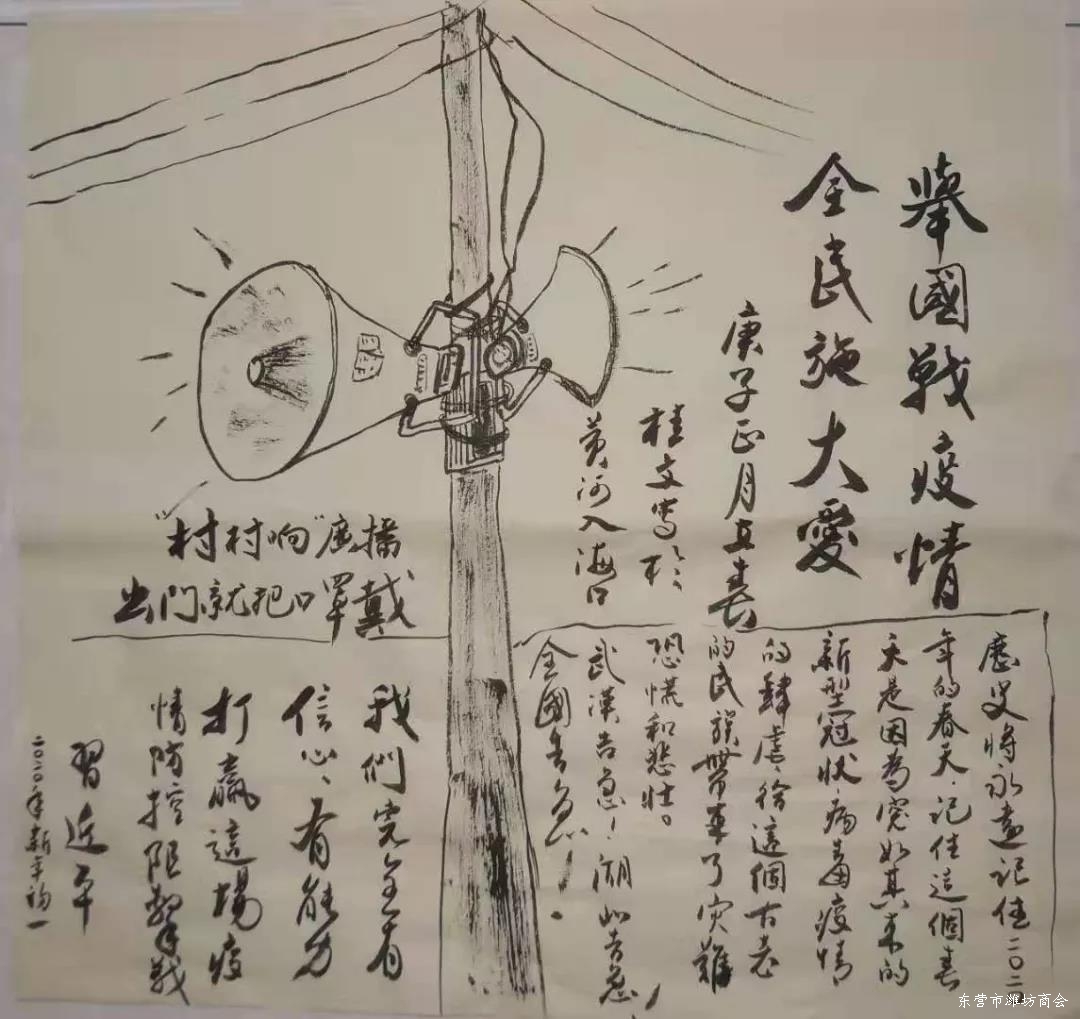 舉國戰疫情
全民施大愛
庚子正月立春
桂文写於
黄河入海口
"村村响"廣播
出门就把口罩戴
歷史將永遠記住二〇二〇
年的春天，記住這個春
天是因為突如其来的
新型冠狀病毒疫情
的肆虐，给這個古老
的民族帶来了灾難
恐慌和悲壮。
武漢告急！湖北告急！
全國告急！
我們完全有
信心、有能力
打贏這場疫
情防控阻擊战
習近平
二〇二〇年新年初一
东营市潍坊商会